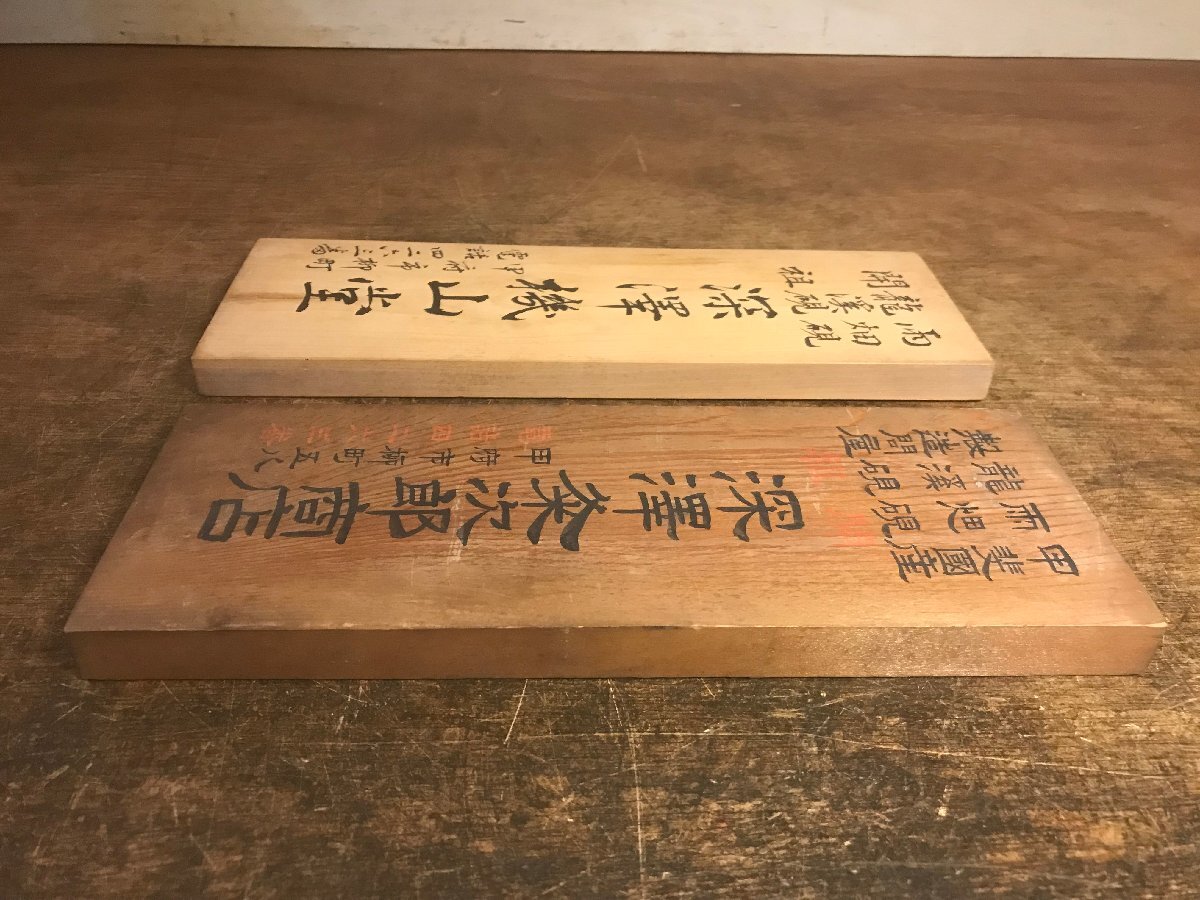 雨畑硯
龍溪硯
開祖
深澤 山堂
甲府市柳町
電話四二六三番
甲斐國産
雨畑硯
龍溪硯
製造問屋
深澤粂次郎商店
甲府市柳町五八